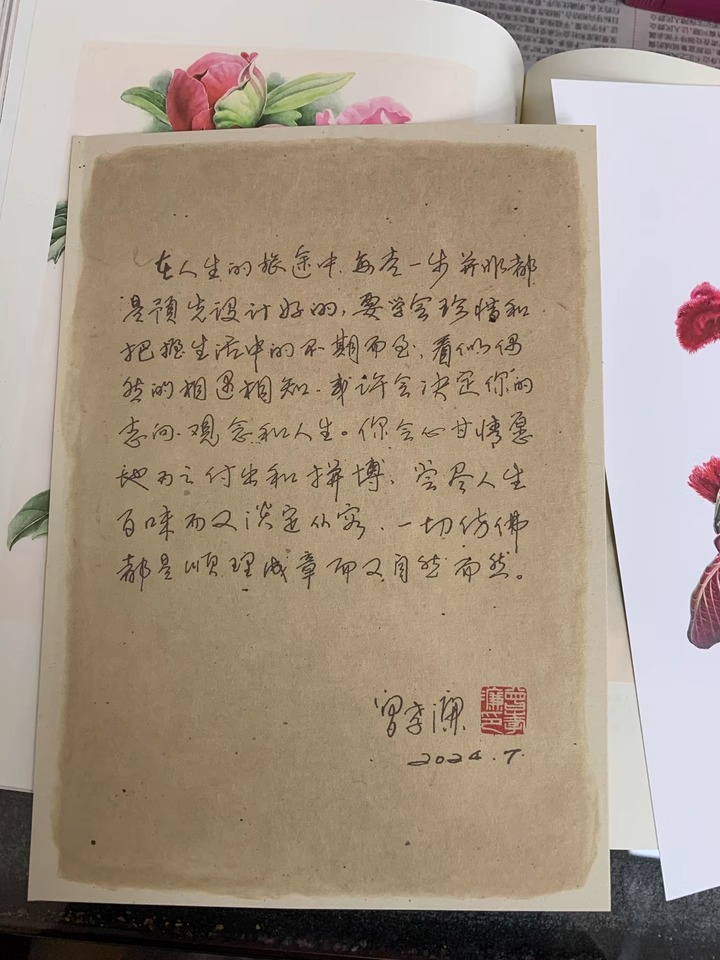 在人生的旅途中,每走一步并非都
是预先设计好的,要学会珍惜和
把握生活中的不期而至,看似偶
然的相遇相知,或许会决定你的
志向、观念和人生。你会心甘情愿
地为之付出和拼搏,尝尽人生
百味而又淡定从容,一切仿佛
都是顺理成章而又自然而然。
曾孝濂
曾孝濂印
2024.7.